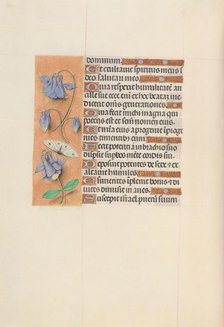 dominum.
Et exultavit spiritus meus i
deo salutari meo.
Quia respexit humilitatē an
cille sue ecce eni ex hoc beatam me
dicent oēs generationes.
Quia fecit michi magna qui
potens est et sctm nomen eius.
Et mīa eius a progenie ī pgenies
timentibus eum.
Fecit potentiam in brachio suo
dispsit supbos mente cordis sui.
Deposuit potentes de sede et ex
altavit humiles.
Esurientes īplevit bonis et di
vites dimisit in anes.
Suscepit israel puerū suum